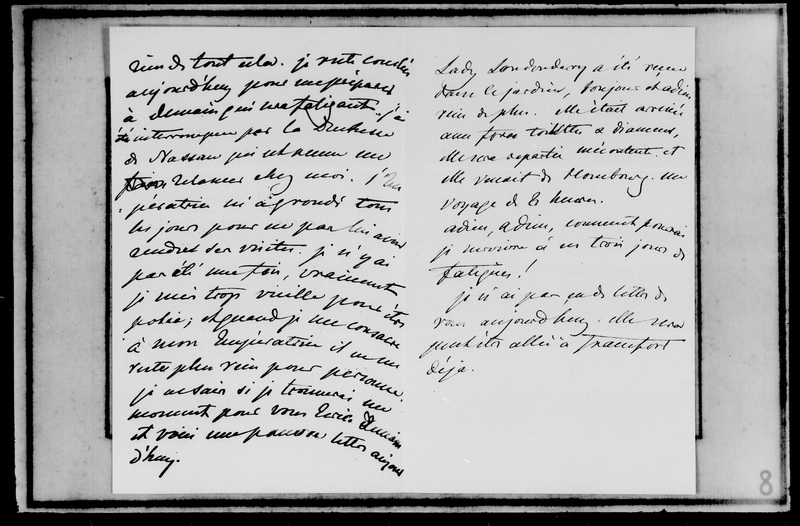 rien de tout cela. je reste couchée
aujourd'huy pour me préparer
à demain qui sera fatigant. j'ai
été interrompue par la Duchesse
de Nassau qui est venue me
relancer chez moi. j'Im
pératrice m'a grondé tous
les jours pour ne pas lui avoir
rendu ses visites. je n'y ai
pas été une fois, vraiment
je suis trop vieille pour être
polie; et quand je me consacre
à mon Impératrice il ne me
reste plus rien pour personne.
je ne sais si je trouverai un
moment pour vous écrire demain
et voici une pauvre lettre aujour
d'huy.
Lady Londonderry a été reçue
dans le jardin, bonjour et adieu
rien de plus. Elle était arrivée
avec force toilettes & diamens,
elle sera repartie mécontente. et
elle venait de Hombourg. un
voyage de 8 heures.
adieu, adieu, comment pourrai
je survivre à ces trois jours de
fatigues!
je n'ai pas eu de lettre de
vous aujourd'huy. Elle sera
peut être allée à Francfort
déja.
8